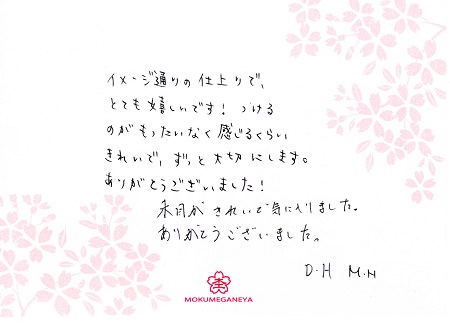 イメージ通りの仕上りで、
とても嬉しいです！ つける
のがもったいなく感じるくらい
きれいで、ずっと大切にします。
ありがとうございました！
木目がきれいで気に入りました。
ありがとうございました。
D.H M.H
MOKUMEGANEYA